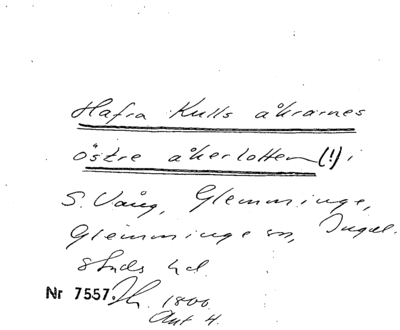 Hafra Kulls åkrarnes
östre åkerlotten (!) i
S. Vång, Glemminge,
Glemminge sn, Ingel-
stads hd.
Nr 7557. Sk. 1800
Akt 4.